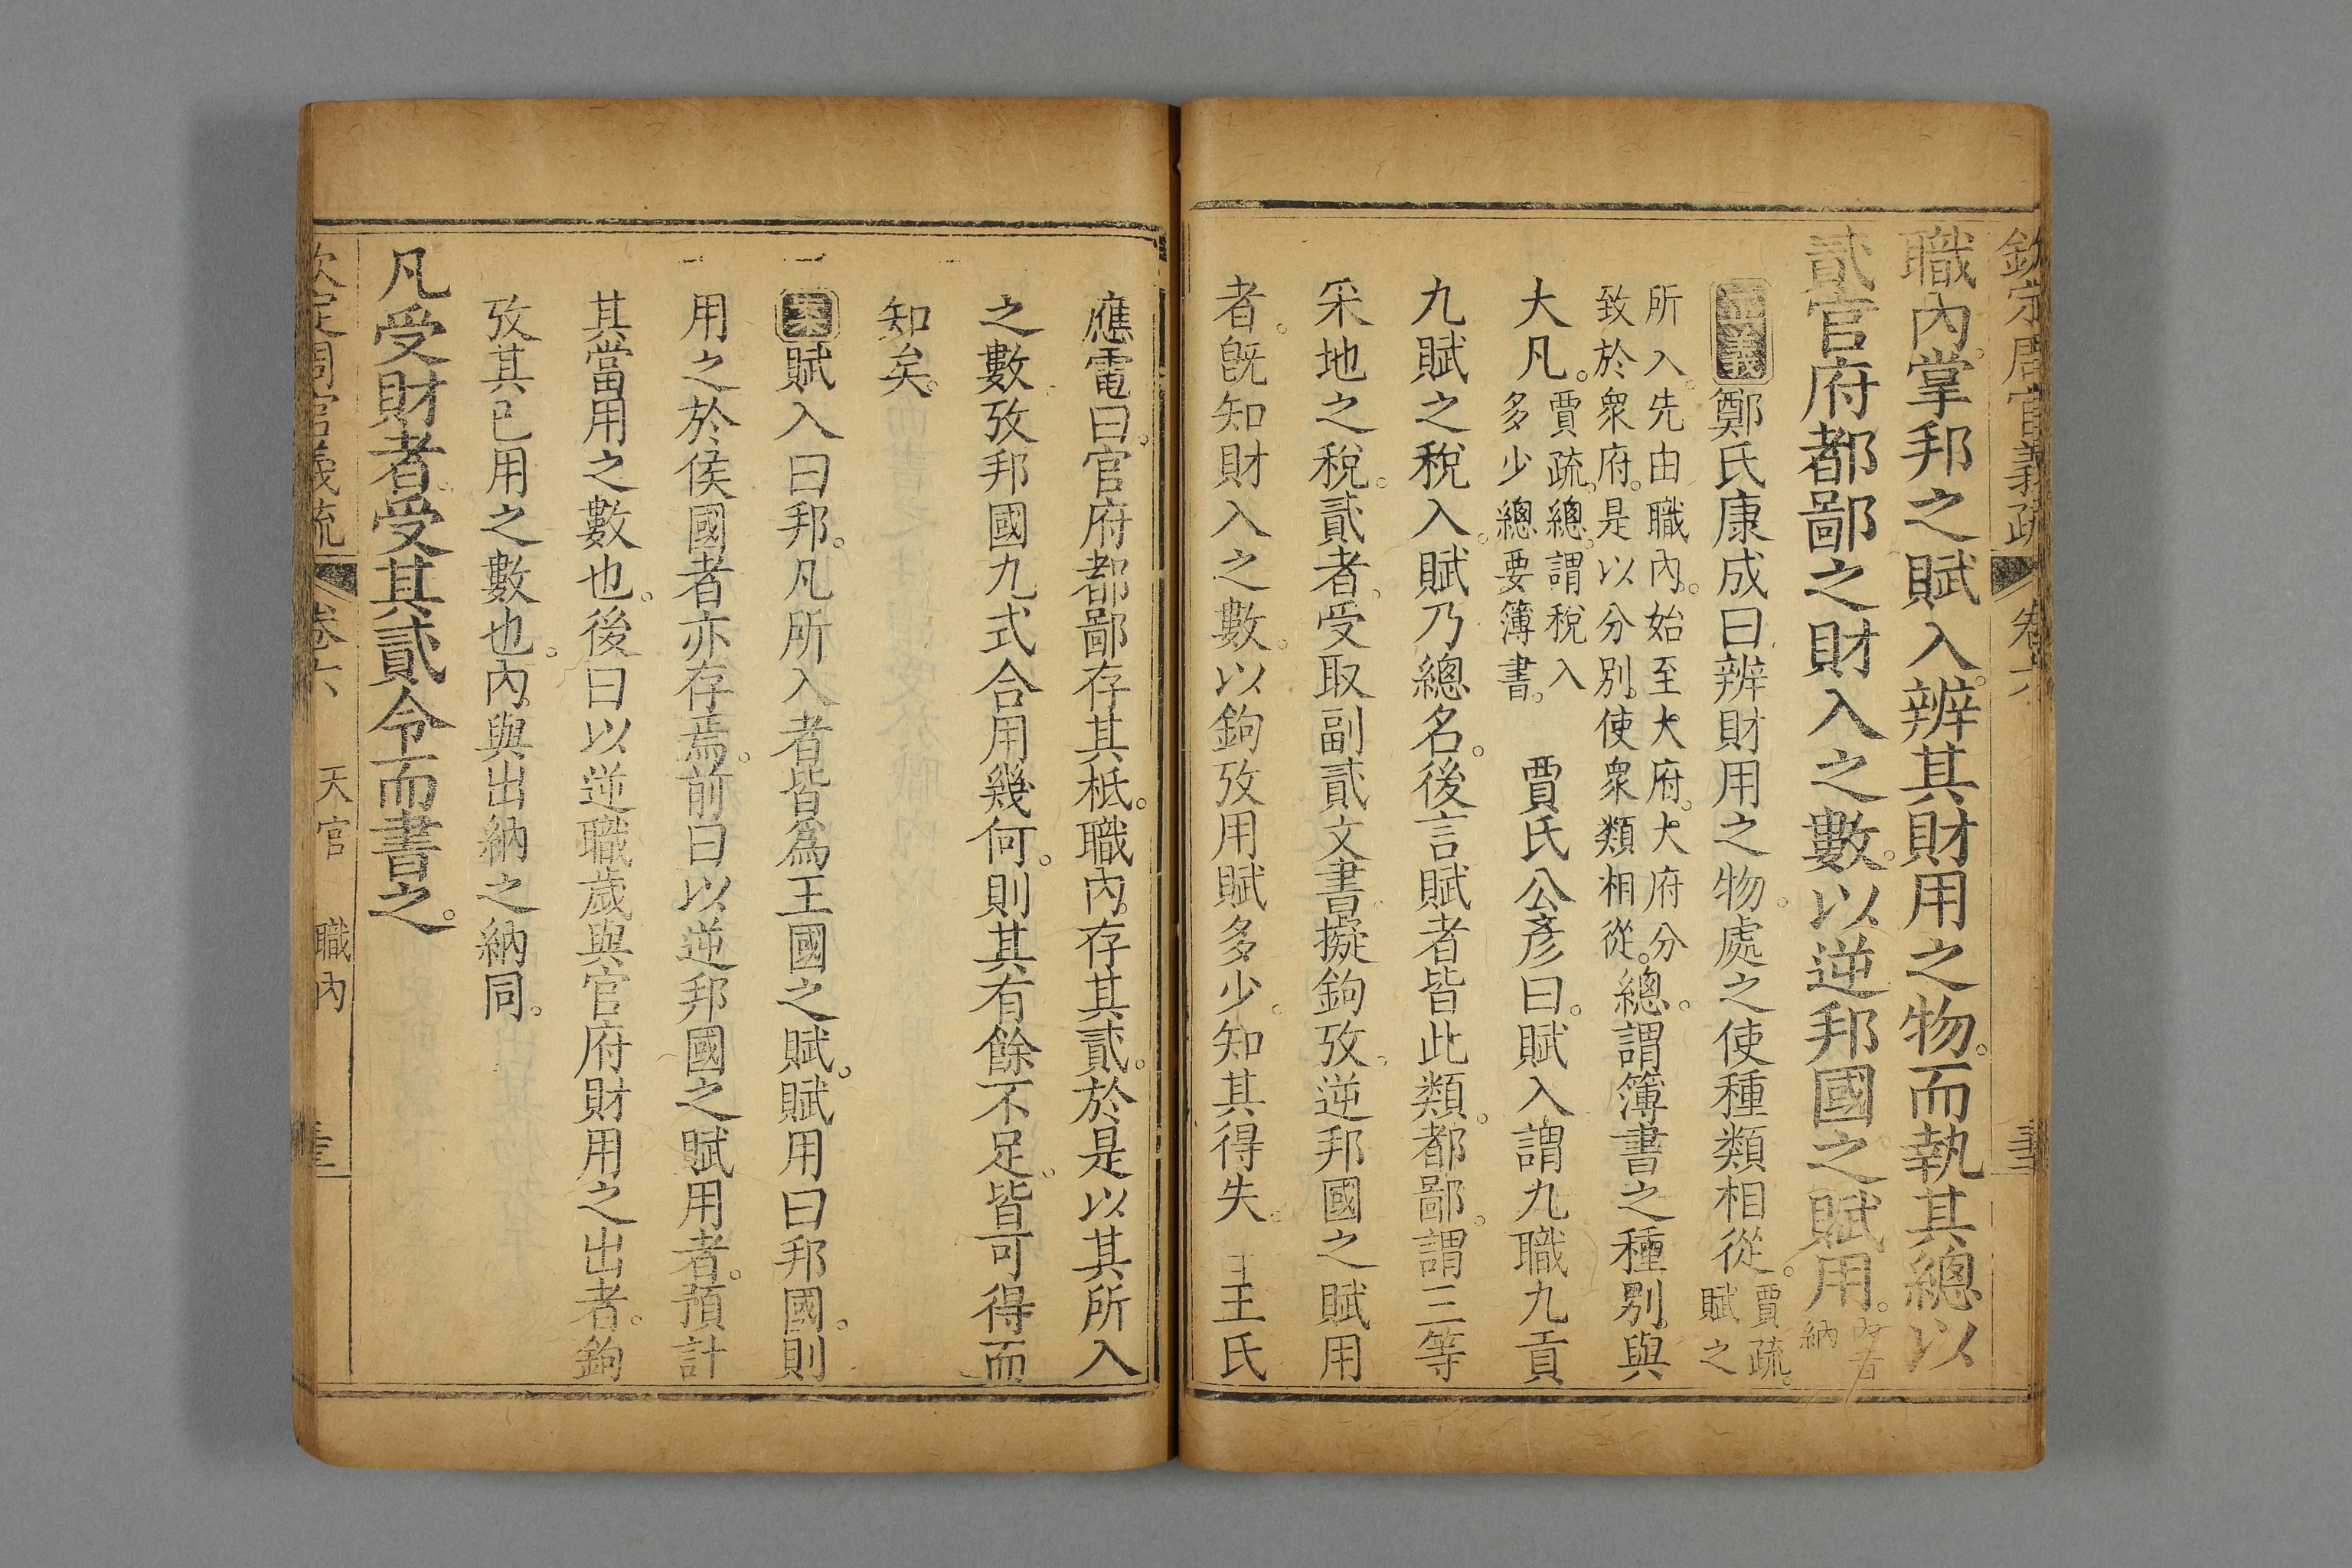 欽定周官義疏 卷六
職內。掌邦之賦入。辨其財用之物。而執其總。以
貳官府都鄙之財入之數。以逆邦國之賦用。內音納
正義鄭氏康成曰。辨財用之物。處之使種類相從。賈疏。賦之
所入。先由職內。始至大府。大府分致於衆府。是以分別。使衆類相從。總。謂簿書之種別。與
大凡。賈疏。總。謂稅入多少總要簿書。 賈氏公彥曰。賦入謂九職九貢
九賦之稅入。賦乃總名。後言賦者皆此類。都鄙。謂三等
采地之稅。貳者。受取副貳文書。擬鉤攷。逆邦國之賦用
者。旣知財入之數。以鉤攷用賦多少。知其得失。 王氏
應電曰。官府都鄙存其柢。職內存其貳。於是以其所入
之數。攷邦國九式合用幾何。則其有餘不足。皆可得而
知矣。
案賦入曰邦。凡所入者皆爲王國之賦。賦用曰邦國。則
用之於侯國者亦存焉。前曰以逆邦國之賦用者。預計
其當用之數也。後曰以逆職歲與官府財用之出者。鉤
攷其已用之數也。內。與出納之納同。
凡受財者。受其貳令而書之。
欽定周官義疏 卷六 天官 職內